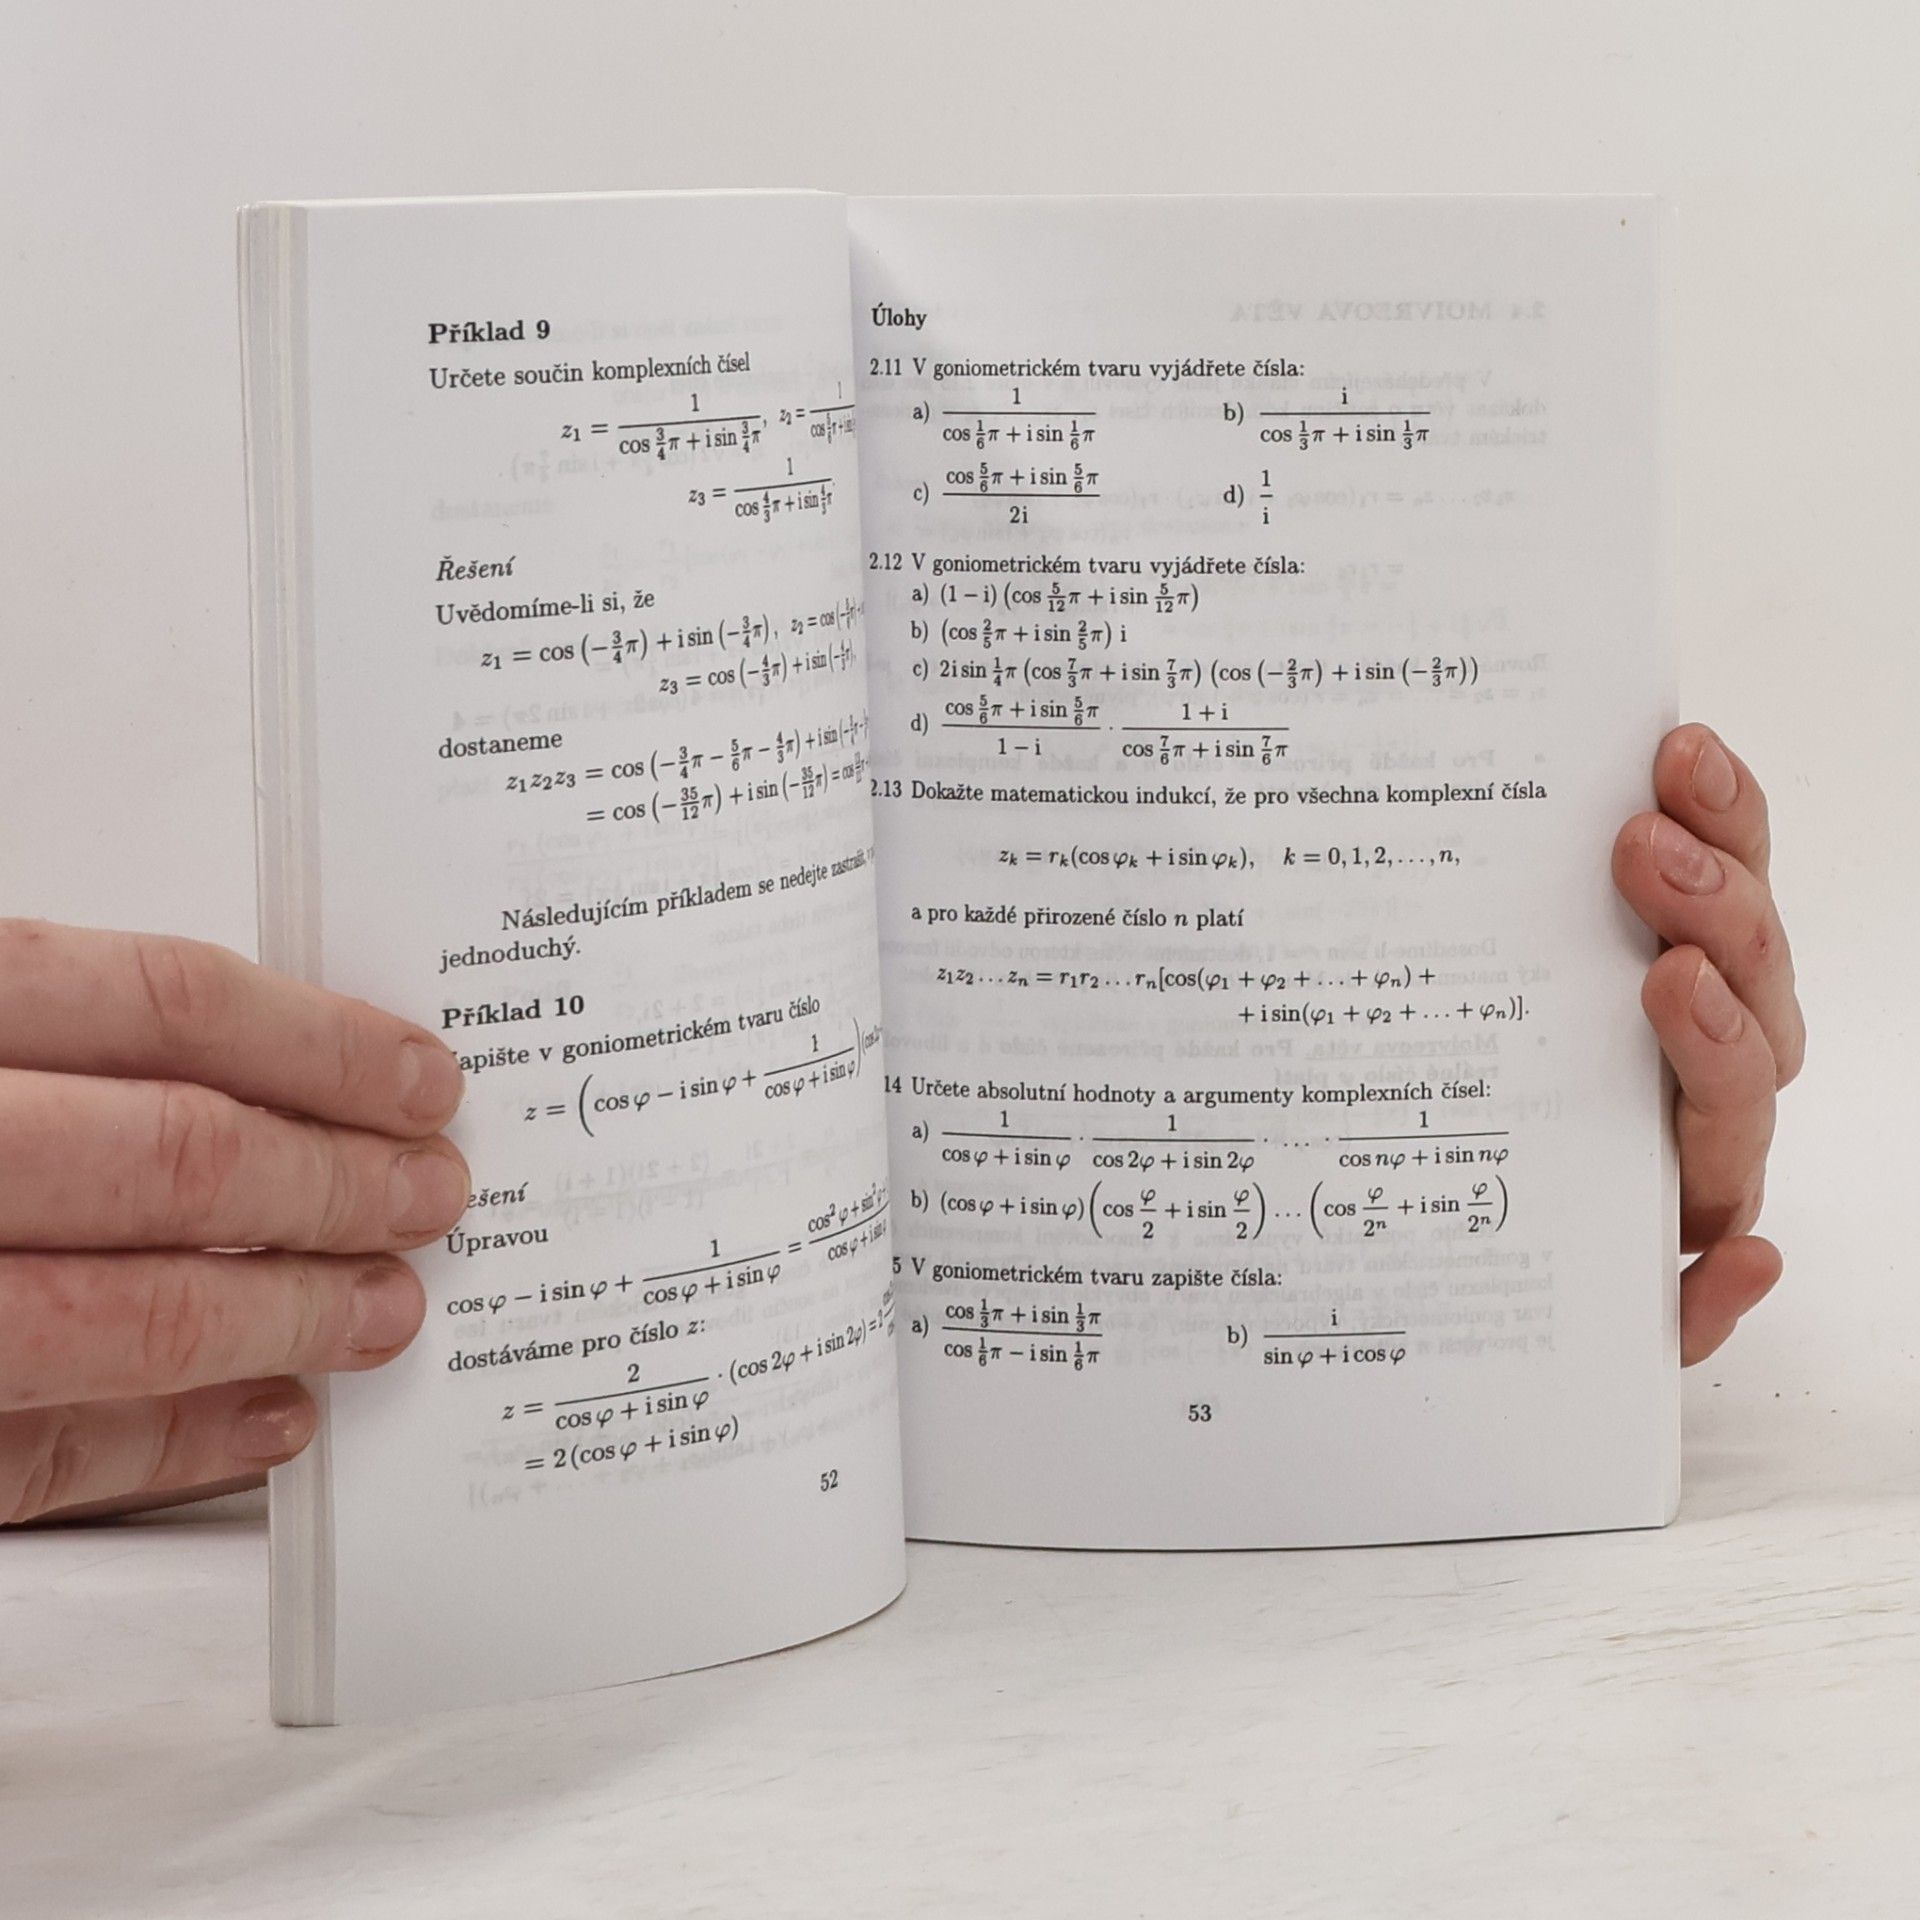 Příklad 9
Určete součin komplexních čísel
z₁ = 1/(cos 3/4 π + i sin 3/4 π), z₂ = 1/
z₃ = 1/(cos 4/3 π + i sin 4/3 π)
Řešení
Uvědomíme-li si, že
z₁ = cos (−3/4 π) + i sin (−3/4 π), z₂ = cos
z₃ = cos (−4/3 π) + i sin (−4/3 π),
dostaneme
z₁z₂z₃ = cos (−3/4 π − 5/6 π − 4/3 π) + i sin
= cos (−35/12 π) + i sin (−35/12 π) = cos
Následujícím příkladem se nedejte
jednoduchý.
Příklad 10
v goniometrickém tvaru číslo
z = (cos φ − i sin φ + 1/(cos φ + i sin φ))
Úpravou
cos φ − i sin φ + 1/(cos φ + i sin φ) = cos² φ + sin² φ / cos φ + i sin
dostáváme pro číslo z:
z = 2/(cos φ + i sin φ) · (cos 2φ + i sin 2φ) = 2
= 2 (cos φ + i sin φ)
52
Úlohy
2.11 V goniometrickém tvaru vyjádřete čísla:
a) 1/(cos 1/6 π + i sin 1/6 π) b) i/(cos 1/3 π + i sin 1/3 π)
c) (cos 5/6 π + i sin 5/6 π)/2i d) 1/i
2.12 V goniometrickém tvaru vyjádřete čísla:
a) (1 − i) (cos 5/12 π + i sin 5/12 π)
b) (cos 2/5 π + i sin 2/5 π) i
c) 2i sin 1/4 π (cos 7/3 π + i sin 7/3 π) (cos (−2/3 π) + i sin (−2/3 π))
d) (cos 5/6 π + i sin 5/6 π)/(1 − i) · (1 + i)/(cos 7/6 π + i sin 7/6 π)
2.13 Dokažte matematickou indukcí, že pro všechna komplexní čísla
zₖ = rₖ(cos φₖ + i sin φₖ), k = 0, 1, 2, . . . , n,
a pro každé přirozené číslo n platí
z₁z₂ . . . zₙ = r₁r₂ . . . rₙ[cos(φ₁ + φ₂ + . . . + φₙ) +
+ i sin(φ₁ + φ₂ + . . . + φₙ)].
14 Určete absolutní hodnoty a argumenty komplexních čísel:
a) 1/(cos φ + i sin φ) · 1/(cos 2φ + i sin 2φ) · . . . · 1/(cos nφ + i sin nφ)
b) (cos φ + i sin φ) (cos φ/2 + i sin φ/2) . . . (cos φ/2ⁿ + i sin φ/2ⁿ)
5 V goniometrickém tvaru zapište čísla:
a) (cos 1/3 π + i sin 1/3 π)/(cos 1/6 π − i sin 1/6 π) b) i/(sin φ + i cos φ)
53